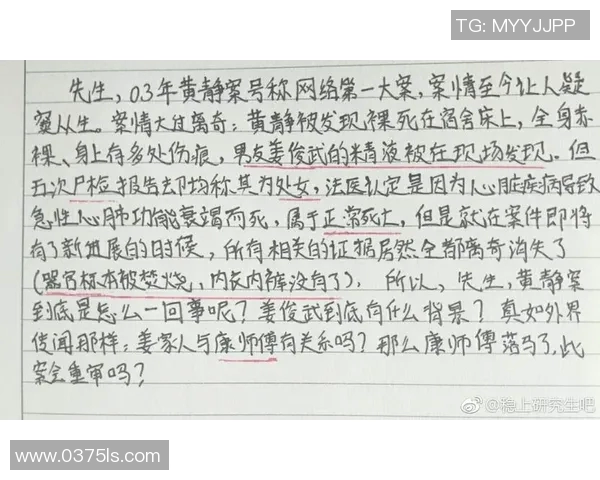 TG: MYYJJPP
先生，03年黄静案号称网络第一大案，案情至今让人疑
窦从生。案情太过离奇：黄静被发现裸死在宿舍床上，全身赤
裸、身上有多处伤痕，男友姜俊武的精液被在现场发现。但
五次尸检报告却均称其为处女，法医认定是因为心脏疾病导致
急性心肺功能衰竭而死，属于正常死亡，但是就在案件即将
有了新进展的时候，所有相关的证据居然全都离奇消失了
(器官标本被焚烧，内衣内裤没有了)。所以，先生，黄静案
到底是怎么一回事呢？姜俊武到底有什么背景？真如外界
传闻那样：姜家人与康师傅有关系吗？那么康师傅落马了，此
案会重审吗？
@稳上研究生吧
www.0375ls.com